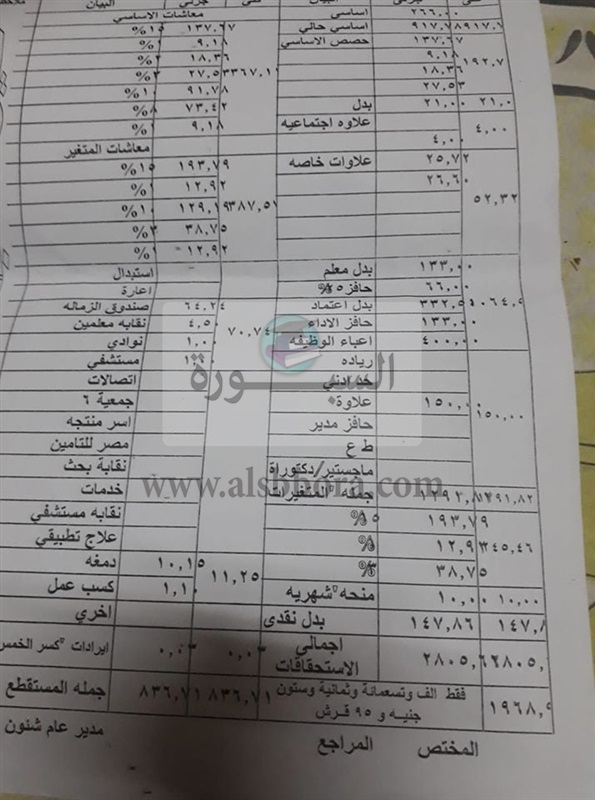 كلى جزئى البيان كلى جزئي البيان
٢٦٦,٠٠ اساسى معاشات الاساسي
٩١٧,٧ ٩١٧,٧٨ اساسي حالي ١٣٧,٦٧ ١٥%
١٣٧,٦٧ حصص الاساسي ٩,١٨ ١%
١٩٢,٧ ٩,١٨ ١٨,٣٦ ٢%
١٨,٣٦ ٣٣٦٧,١ ٢٧,٥ ٣%
٢٧,٥٣ ٩١,٧٨ ١٠%
٢١,٠ ٢١,٠٠ بدل ٧٣,٤٢ ٨%
علاوه اجتماعيه ٩,١٨ ١%
٤,٠٠ ٤,٠٠ معاشات المتغير
٢٥,٧٢ علاوات خاصه ١٩٣,٧٩ ١٥%
٢٦,٦٠ ١٢,٩٢ ١%
٥٢,٣٢ ٣٨٧,٥ ١٢٩,١ ١٠%
٣٨,٧٥ ٣%
١٢,٩٢ ١%
١٣٣,٠٠ بدل معلم استبدال
٦٦,٠٠ حافز ٢٥% اعارة
٠٦٤,٥ ٣٣٢,٥ بدل اعتماد ٦٤,٢٤ صندوق الزماله
١٣٣,٠٠ حافز الاداء ٧٠,٧٤ ٤,٥٠ نقابه معلمين
٤٠٠,٠٠ اعباء الوظيفه ١,٠٠ نوادي
رياده ١,٠٠ مستشفي
حد ادني اتصالات
١٥٠,٠٠ ١٥٠,٠ علاوة جمعية ٦
حافز مدير اسر منتجه
ط ع مصر للتامين
ماجستير/دكتوراة نقابة بحث
٤٩١,٨٢ ١٢٩٢,٨ جمله المتغيرات خدمات
١٩٣,٧٩ ١٥% نقابه مستشفي
٢٤٥,٤٦ ١٢,٩ ١% علاج تطبيقي
٣٨,٧٥ ٣% ١٠,١٥ دمغه
١٠,٠٠ ١٠,٠٠ منحه شهريه ١١,٢٥ ١,١٠ كسب عمل
١٤٧,٨ ١٤٧,٨٦ بدل نقدي اخري
٢٨٠٥,٦ اجمالي الاستحقاقات ٠,٠٣ ٠,٠٣ ايرادات كسر الخمس
١٩٦٨,٩ فقط الف وتسعمائة وثمانية وستون جنيه و ٩٥ قرش ٨٣٦,٧١ ٨٣٦,٧١ جمله المستقطع
المختص المراجع مدير عام شئون
السبورة
www.alsbbora.com